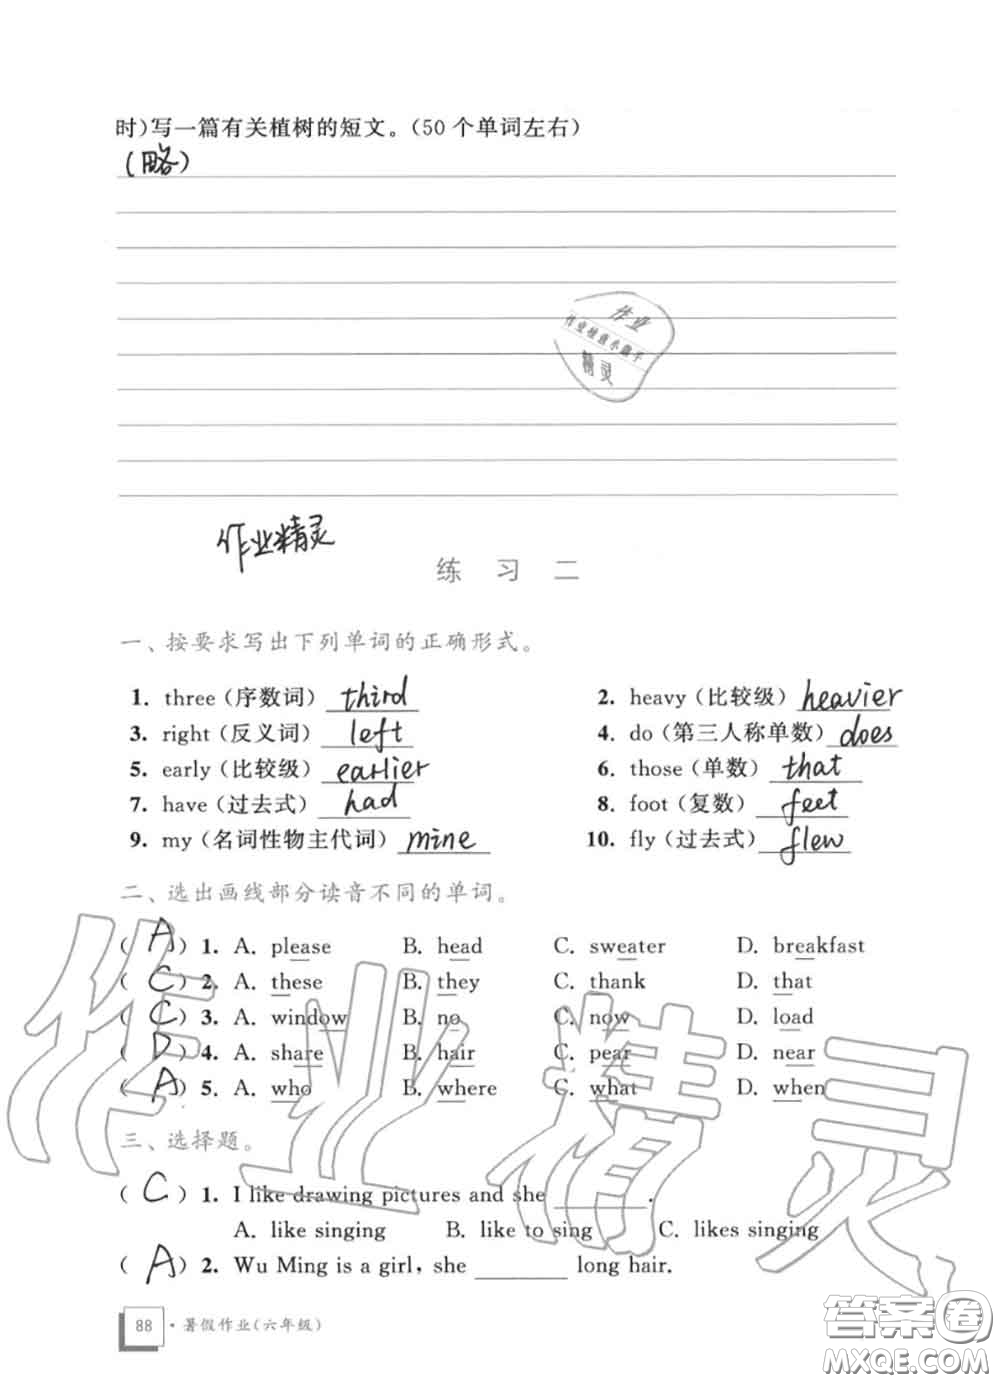 时)写一篇有关植树的短文。(50 个单词左右)
(略)
作业
作业检查小助手
精灵
作业精灵
练 习 二
一、按要求写出下列单词的正确形式。
1. three (序数词) third 2. heavy (比较级) heavier
3. right (反义词) left 4. do (第三人称单数) does
5. early (比较级) earlier 6. those (单数) that
7. have (过去式) had 8. foot (复数) feet
9. my (名词性物主代词) mine 10. fly (过去式) flew
二、选出画线部分读音不同的单词。
( A ) 1. A. please B. head C. sweater D. breakfast
( C ) 2. A. these B. they C. thank D. that
( C ) 3. A. window B. no C. now D. load
( D ) 4. A. share B. hair C. pear D. near
( A ) 5. A. who B. where C. what D. when
三、选择题。
( C ) 1. I like drawing pictures and she ________ .
A. like singing B. like to sing C. likes singing
( A ) 2. Wu Ming is a girl, she ________ long hair.
88 · 暑假作业(六年级)
作业精灵
答案圈
MXQE.COM